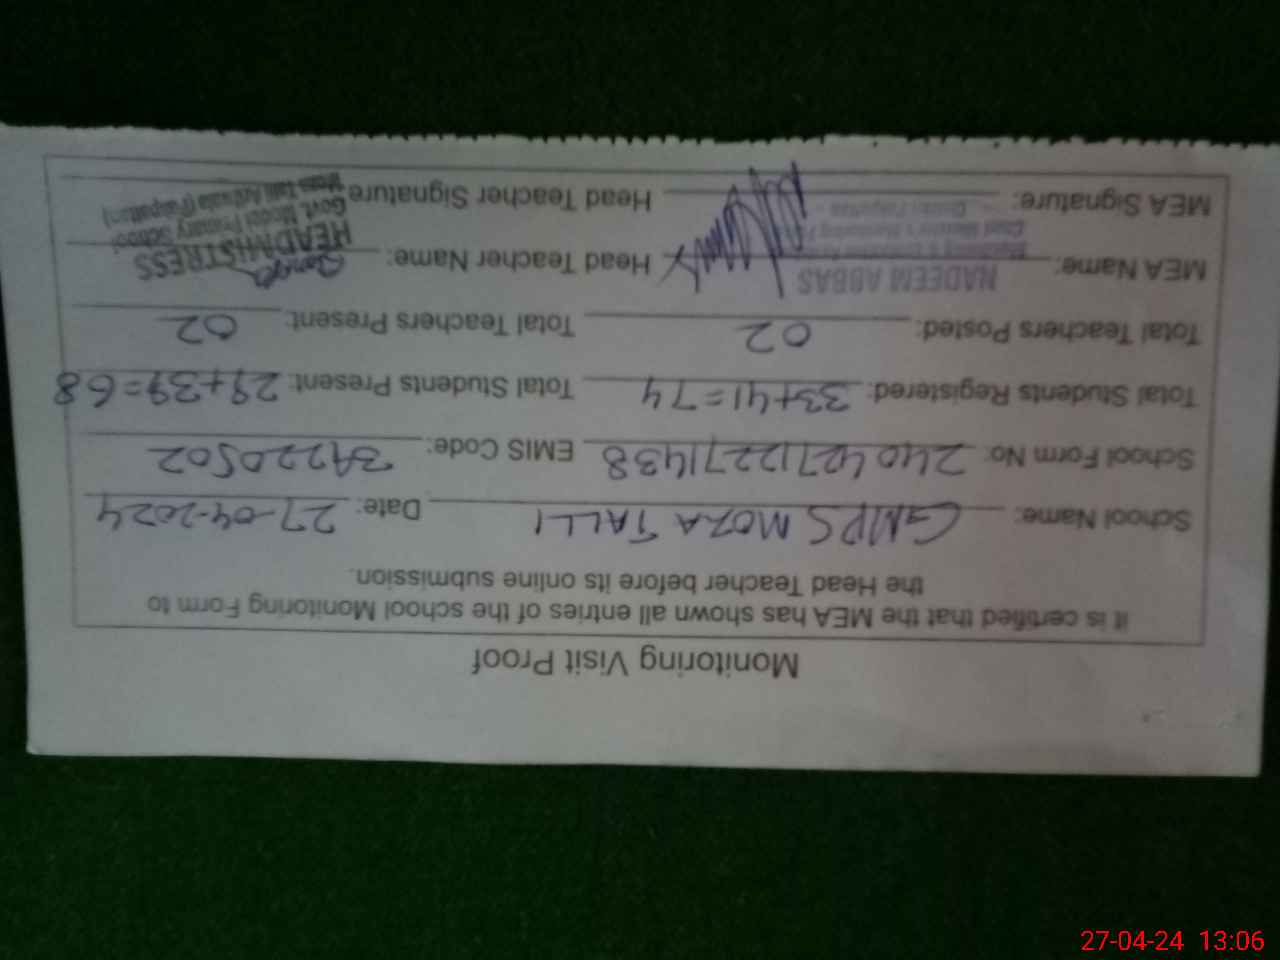 Monitoring Visit Proof
It is certified that the MEA has shown all entries of the school Monitoring Form to
the Head Teacher before its online submission.
School Name: GMPS MOZA TALLI Date: 27-04-2024
School Form No: 2404271227 1438 EMIS Code: 39220502
Total Students Registered: 33+41=74 Total Students Present: 29+39=68
Total Teachers Posted: 02 Total Teachers Present: 02
MEA Name: NADEEM ABBAS Head Teacher Name:
HEADMISTRESS
Govt. Model Primary School
MEA Signature: Head Teacher Signature
Moza Talli Arifwala (Pakpattan)
27-04-24 13:06